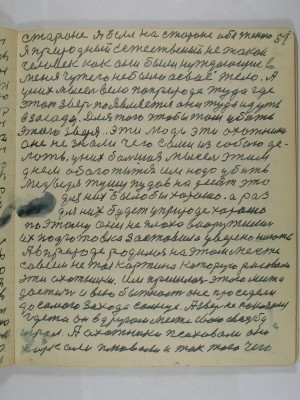 стороне я был на стороне обезяно 51
Я природный естественный не такой
человек как они были нуждающие в
меня чутего небыло а своё тело. А
у них мысел вела по природе туда где
этот зверь появляется они туда идуть
в засаду. Для того чтобы там убить
этого зверя. Эти люди эти охотники
они не знали чего сами из собою де-
лають, у них большая мысел этим
днем обогатится им надо убить
медведя тушу пудов на десят это
для них было бы хорошо. а раз
для них будет у природе хорошо
поэтому они не плохо вооружилися
их подготовка заставила уверено
А в природе родился на этом месте
совсем не та картина которую рисовали
эти охотники. Им пришлося этого места
достич и всю они просидели
до самого захода солнца. А зверь
где то он в другом месте свою свадьбу
играл. А охотники психовали они
плювали и так того чего